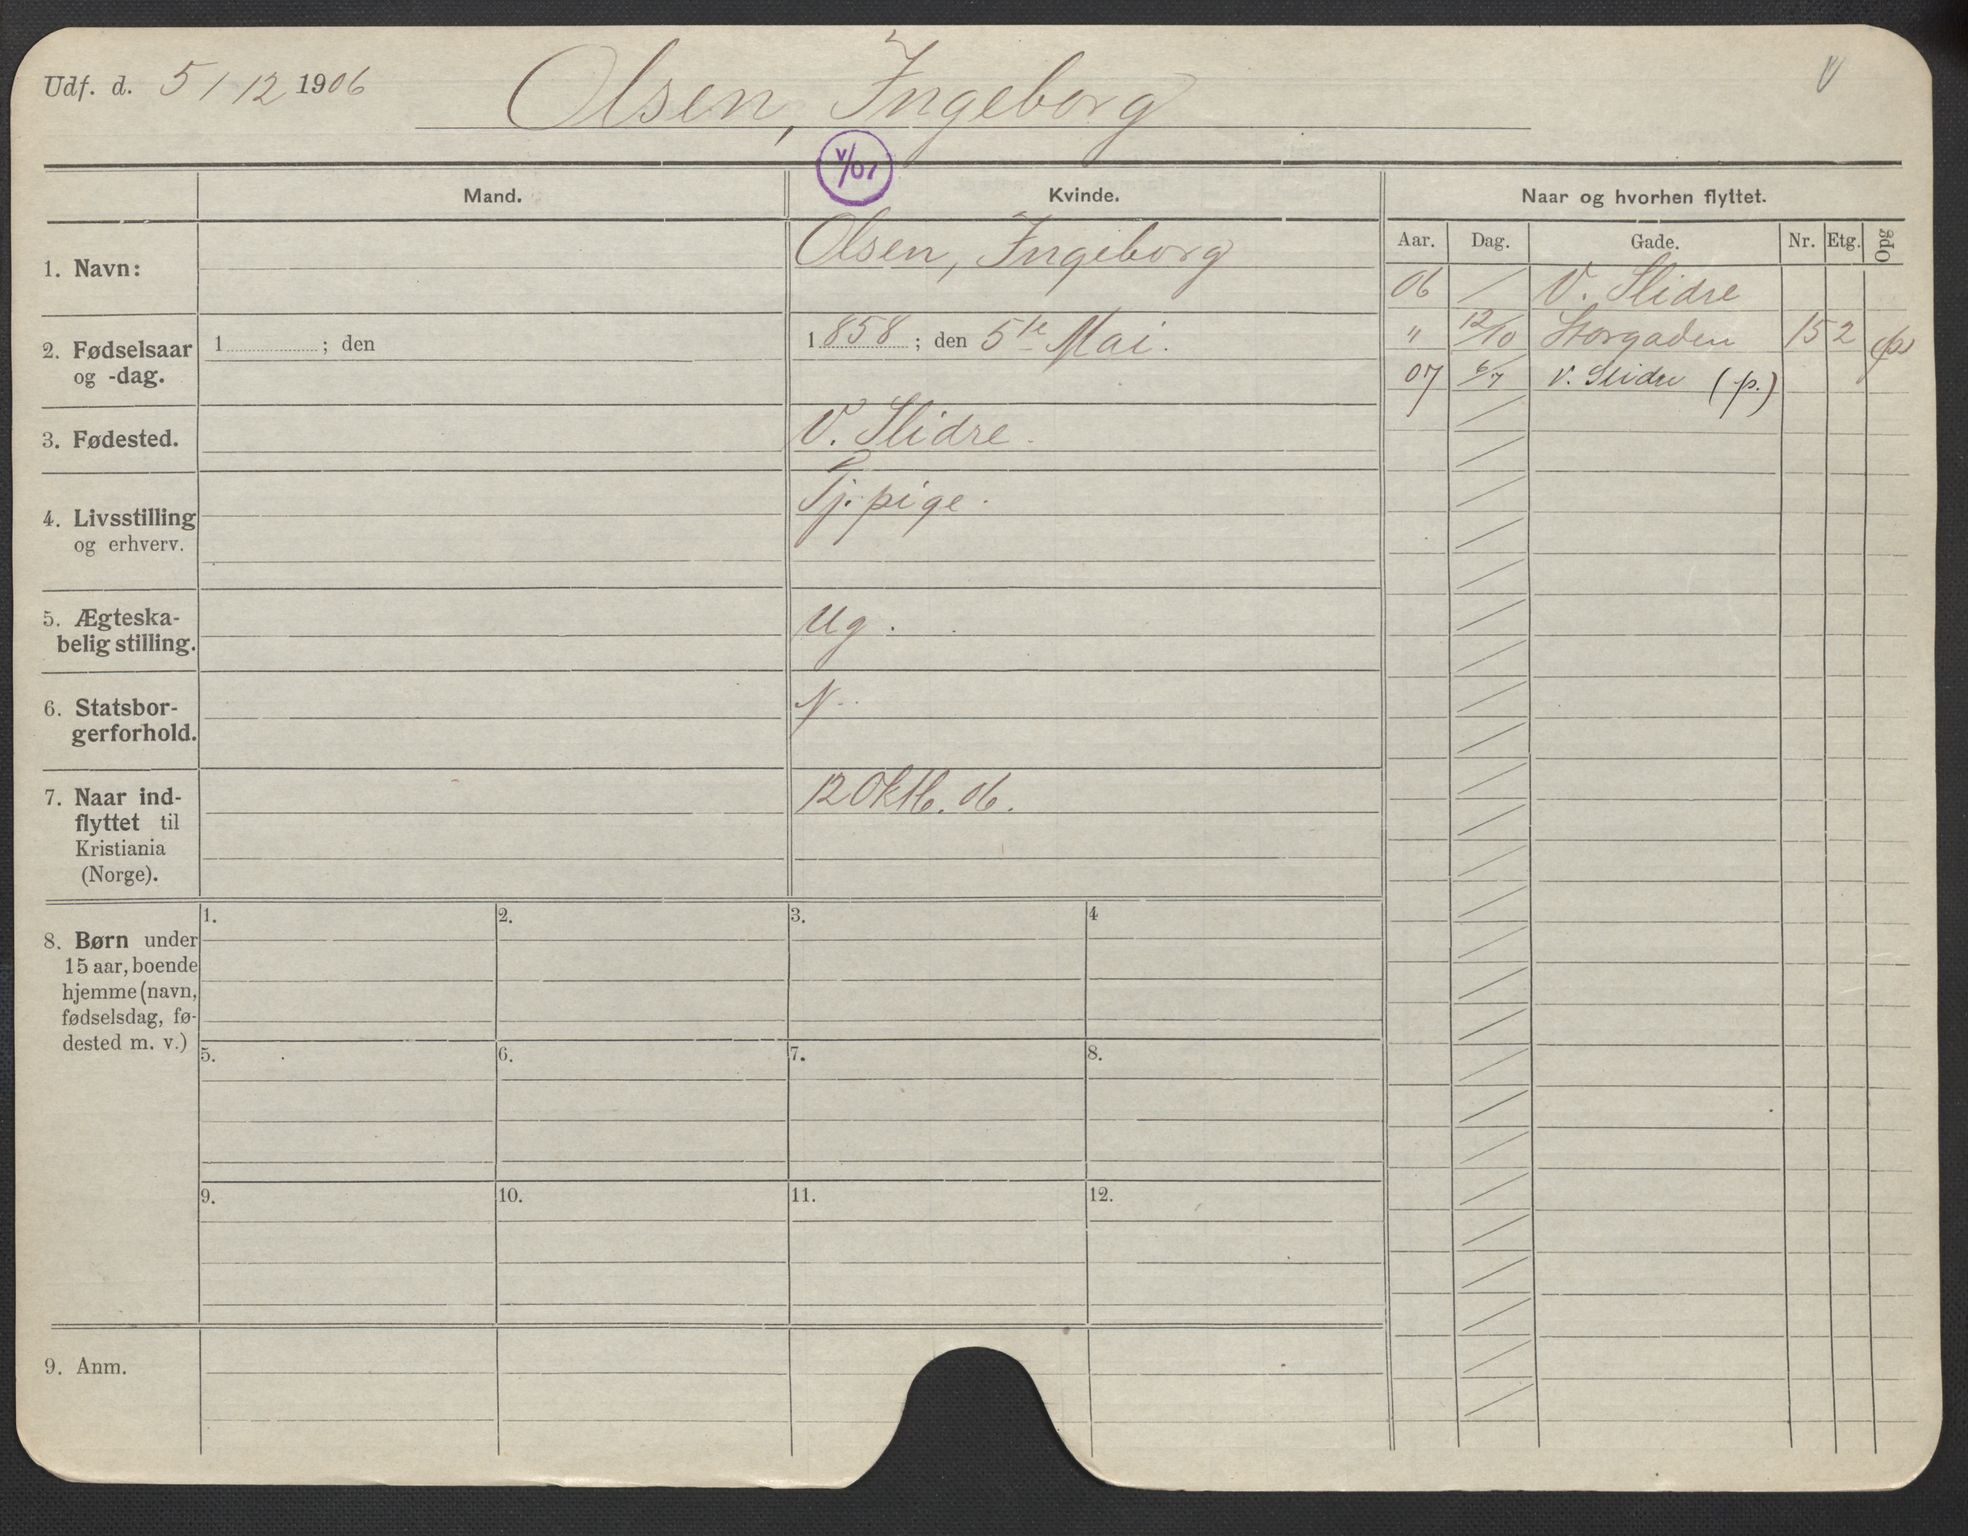 Udf. d. 5/12 1906
Olsen, Ingeborg
V/07
Mand.
Kvinde.
Naar og hvorhen flyttet.
Aar. Dag. Gade. Nr. Etg. Opg
1. Navn:
Olsen, Ingeborg
06 / V. Slidre
2. Fødselsaar
og -dag.
1 ; den
1858; den 5te Mai.
" 12/10 Storgaden 15 2 (p)
07 6/7 V. Slidre (p.)
3. Fødested.
V. Slidre.
4. Livsstilling
og erhverv.
Tj. pige.
5. Ægteska-
belig stilling.
Ug.
6. Statsbor-
gerforhold.
N.
7. Naar ind-
flyttet til
Kristiania
(Norge).
12 Oktb. 06.
8. Børn under
15 aar, boende
hjemme (navn,
fødselsdag, fø-
dested m. v.)
1. 2. 3. 4
5. 6. 7. 8.
9. 10. 11. 12.
9. Anm.